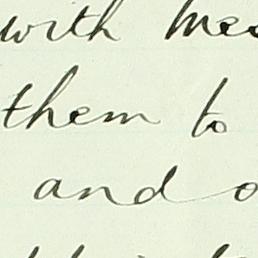 with
them to
and